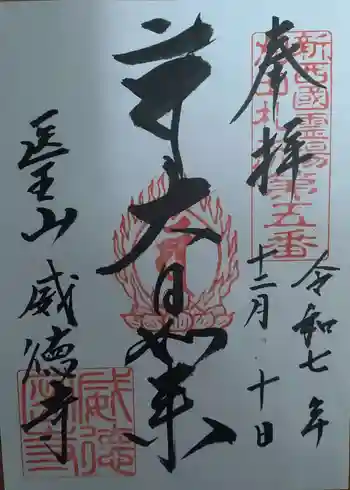 奉拝
令和七年
十二月十日
大日如来
医王山 威徳寺
新西國霊場
第五番
威徳